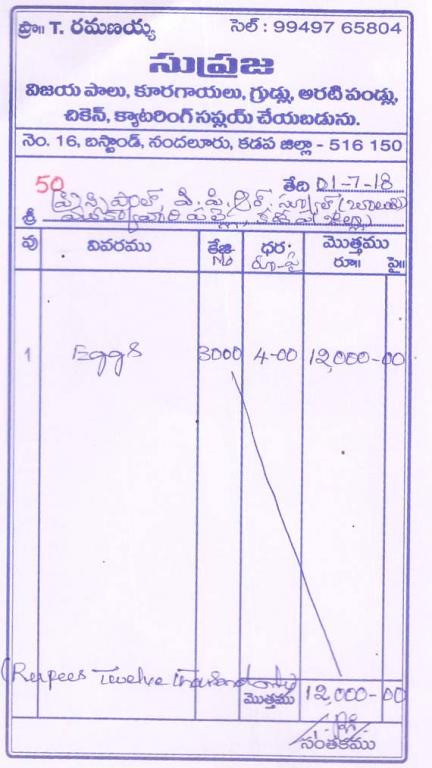 ప్రొ॥ T. రమణయ్య సెల్ : 99497 65804
సుప్రజ
విజయ పాలు, కూరగాయలు, గ్రుడ్లు, అరటి పండ్లు,
చికెన్, క్యాటరింగ్ సప్లయ్ చేయబడును.
నెం. 16, బస్టాండ్, నందలూరు, కడప జిల్లా - 516 150
50 తేది 01-7-18
శ్రీ
వు వివరము కేజి No ధర రూ-పై మొత్తము రూ॥ పై॥
1 Eggs 3000 4-00 12,000-00
(Rupees Twelve thousand only)
మొత్తము 12,000-00
సంతకము